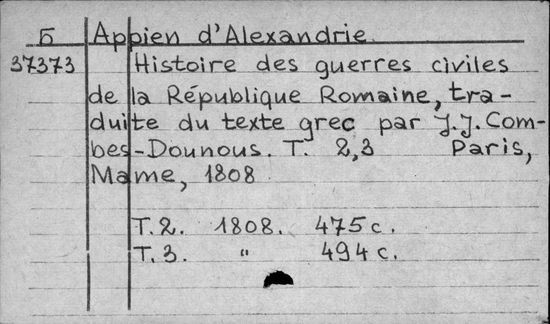 Б Appien d'Alexandrie.
37373 Histoire des guerres civiles
de la République Romaine, tra-
duite du texte grec par J.J. Com-
bes-Dounous. T. 2,3 Paris,
Mame, 1808
T.2. 1808. 475 с.
T.3. " 494 с.